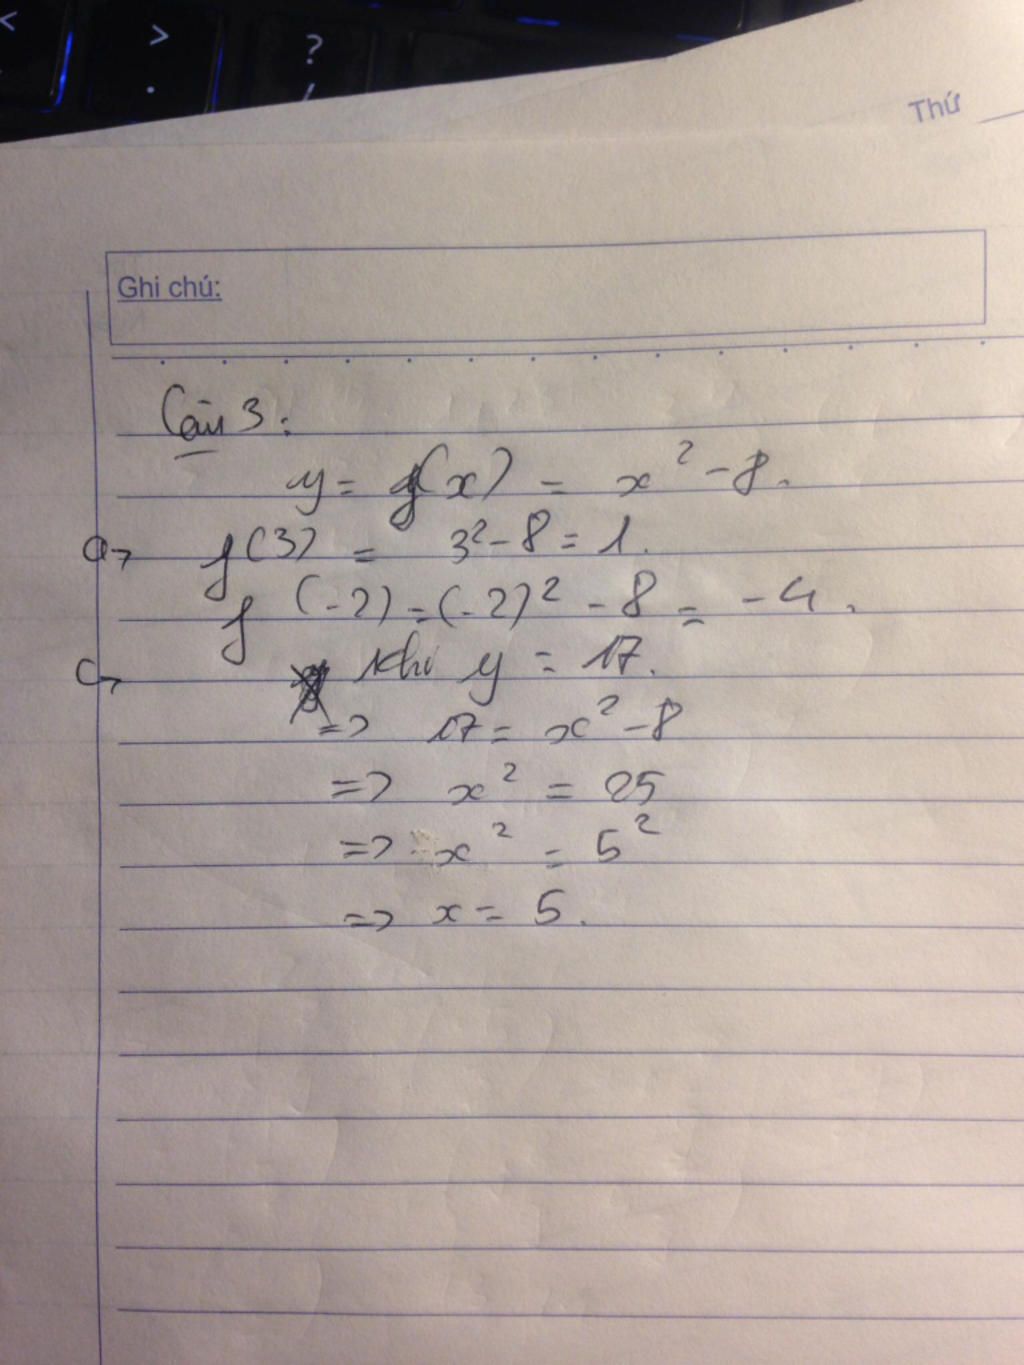 < > ?
. /
Thứ
Ghi chú:
Câu 3:
y = f(x) = x² - 8.
a, f(3) = 3² - 8 = 1.
f(-2) = (-2)² - 8 = -4.
c, Khi y = 17.
=> 17 = x² - 8
=> x² = 25
=> x² = 5²
=> x = 5.